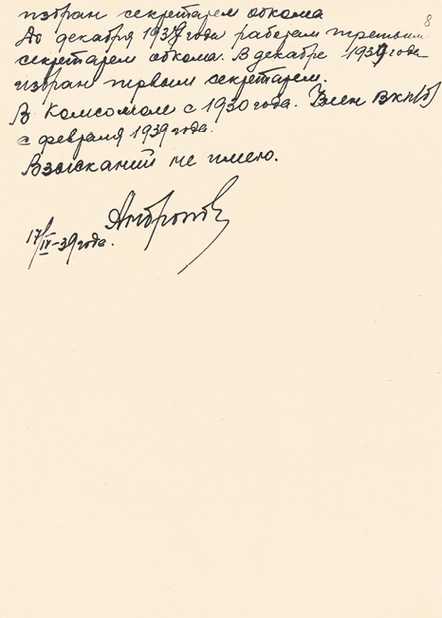 избран секретарем обкома
8
До декабря 1937 года работал третьим
секретарем обкома. В декабре 1937 года
избран первым секретарем.
В Комсомоле с 1930 года. Член ВКП(б)
с февраля 1939 года.
Взысканий не имею.
Андропов
17/IV-39 года.